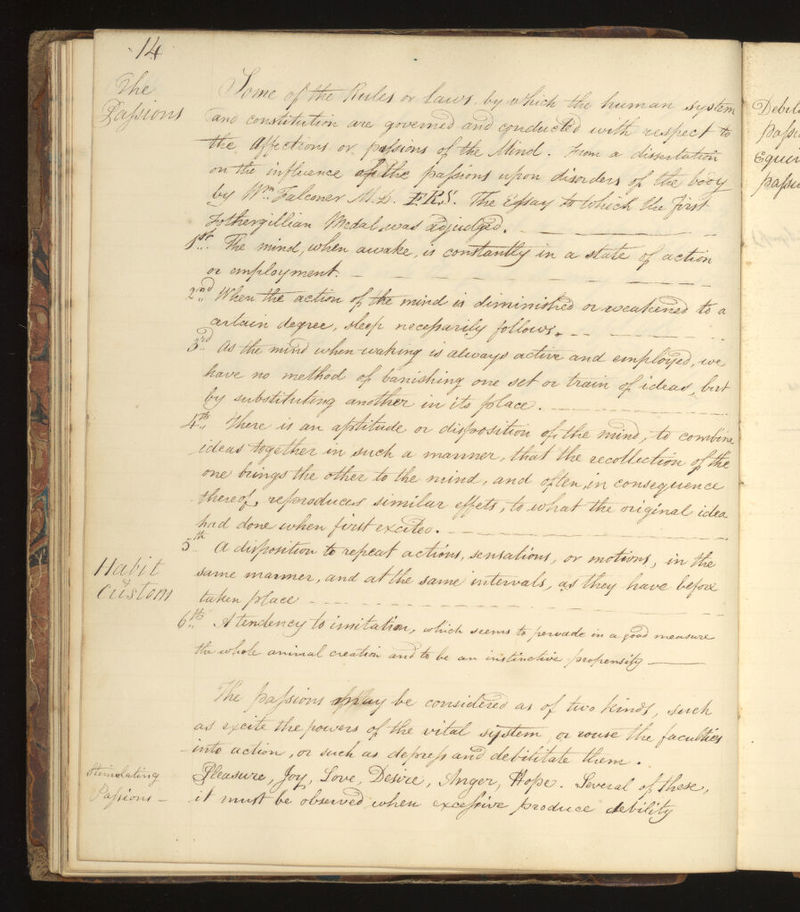 14
The
Passions
Some of the Rules or Laws. by which the human system
and constitution are governed and conducted with respect to
the Affections or passions of the Mind. From a dissertation
on the influence of the passions upon disorders of the body
by Wm Falconer M.D. F.R.S. The Essay to which the first
Fothergillian Medal, was adjudged.
1st The mind, when awake, is constantly in a state of action
or employment.
2nd When the action of the mind is diminished or weakened to a
certain degree, sleep necessarily follows.
3rd As the mind when waking is always active and employed, we
have no method of banishing one set or train of ideas, but
by substituting another in its place.
4th There is an aptitude or disposition of the mind, to combine
ideas together in such a manner, that the recollection of the
one brings the other to the mind, and often, in consequence
thereof, reproduces similar effets, to what the original idea
had done when first excited.
5th A disposition to repeat actions, sensations, or motions, in the
Habit
&
Custom
same manner, and at the same intervals, as they have before
taken place
6th A tendency to imitation, which seems to pervade in a good measure
the whole animal creation and to be an instinctive propensity
The passions may be considered as of two kinds, such
as excite the powers of the vital system, or rouse the faculties
into action, or such as depress and debilitate them.
Stimulating
Passions
Pleasure, Joy, Love, Desire, Anger, Hope. Several of these,
it must be observed, when excessive produce debility
Debil
passi